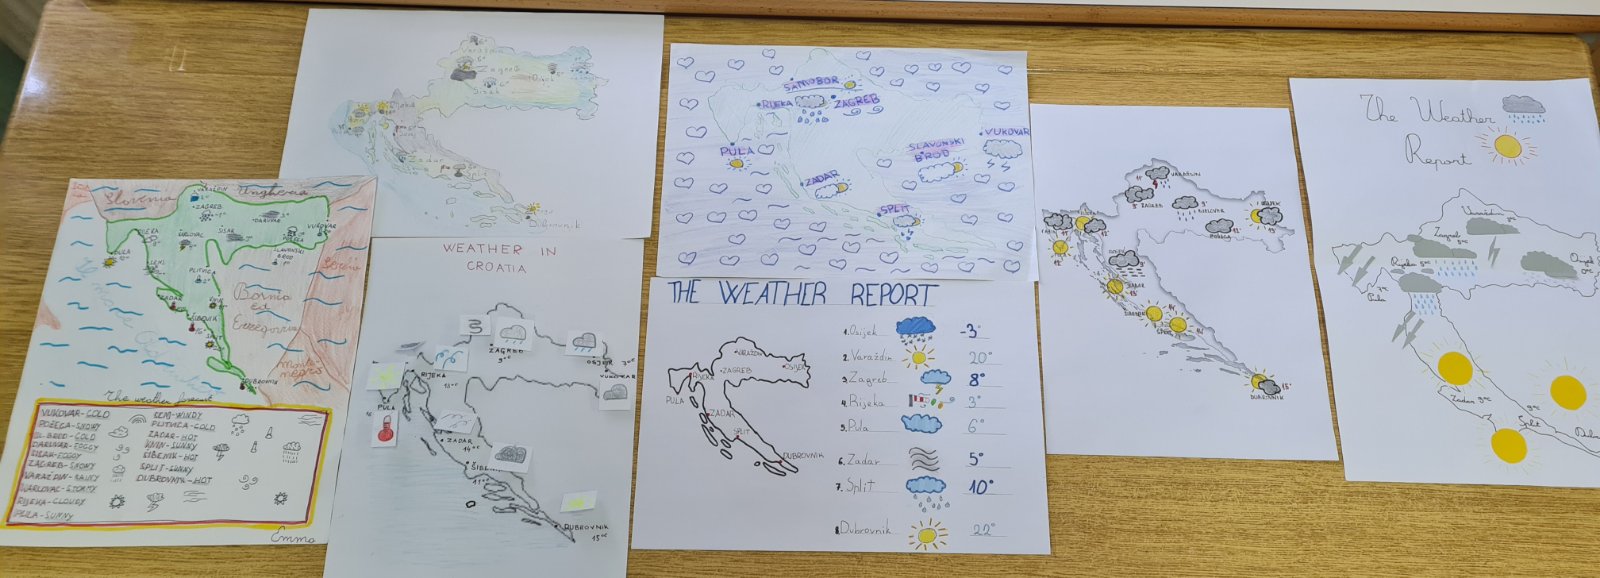 Slovenia
Ungheria
VARAŽDIN
ZAGREB
DARUVAR
VUKOVAR
POŽEGA
SLAVONSKI
BROD
RIJEKA
SISAK
PULA
SENJ
PLITVICA
ZADAR
KNIN
ŠIBENIK
SPLIT
DUBROVNIK
Bosnia
Serbia
The weather forecast
VUKOVAR-COLD
POŽEGA-SNOWY
SL. BROD-COLD
DARUVAR-FOGGY
SISAK-FOGGY
ZAGREB-SNOWY
VARAŽDIN-RAINY
KARLOVAC-STORMY
RIJEKA-CLOUDY
PULA-SUNNY
SENJ-WINDY
PLITVICA-COLD
ZADAR-HOT
KNIN-SUNNY
ŠIBENIK-HOT
SPLIT-SUNNY
DUBROVNIK-HOT
Emma
Varaždin
Zagreb
Sisak
Rijeka
Senj
Zadar
Split
Dubrovnik
WEATHER IN
CROATIA
ZAGREB
9°C
OSIJEK
7°C
VUKOVAR
RIJEKA
13°C
PULA
ZADAR
14°C
DUBROVNIK
15°C
SAMOBOR
RIJEKA
ZAGREB
VUKOVAR
PULA
SLAVONSKI
BROD
ZADAR
SPLIT
THE WEATHER REPORT
VARAŽDIN
ZAGREB
OSIJEK
RIJEKA
PULA
ZADAR
SPLIT
DUBROVNIK
1. Osijek -3°
2. Varaždin 20°
3. Zagreb 8°
4. Rijeka 3°
5. Pula 6°
6. Zadar 5°
7. Split 10°
8. Dubrovnik 22°
VARAŽDIN
ZAGREB
BJELOVAR
OSIJEK
POŽEGA
RIJEKA
ZADAR
SPLIT
DUBROVNIK
15°
The Weather
Report
Varaždin
Zagreb
5°C
Rijeka 5°C
Osijek
0°C
7°C
Pula
Zadar 9°C
9°C
Split